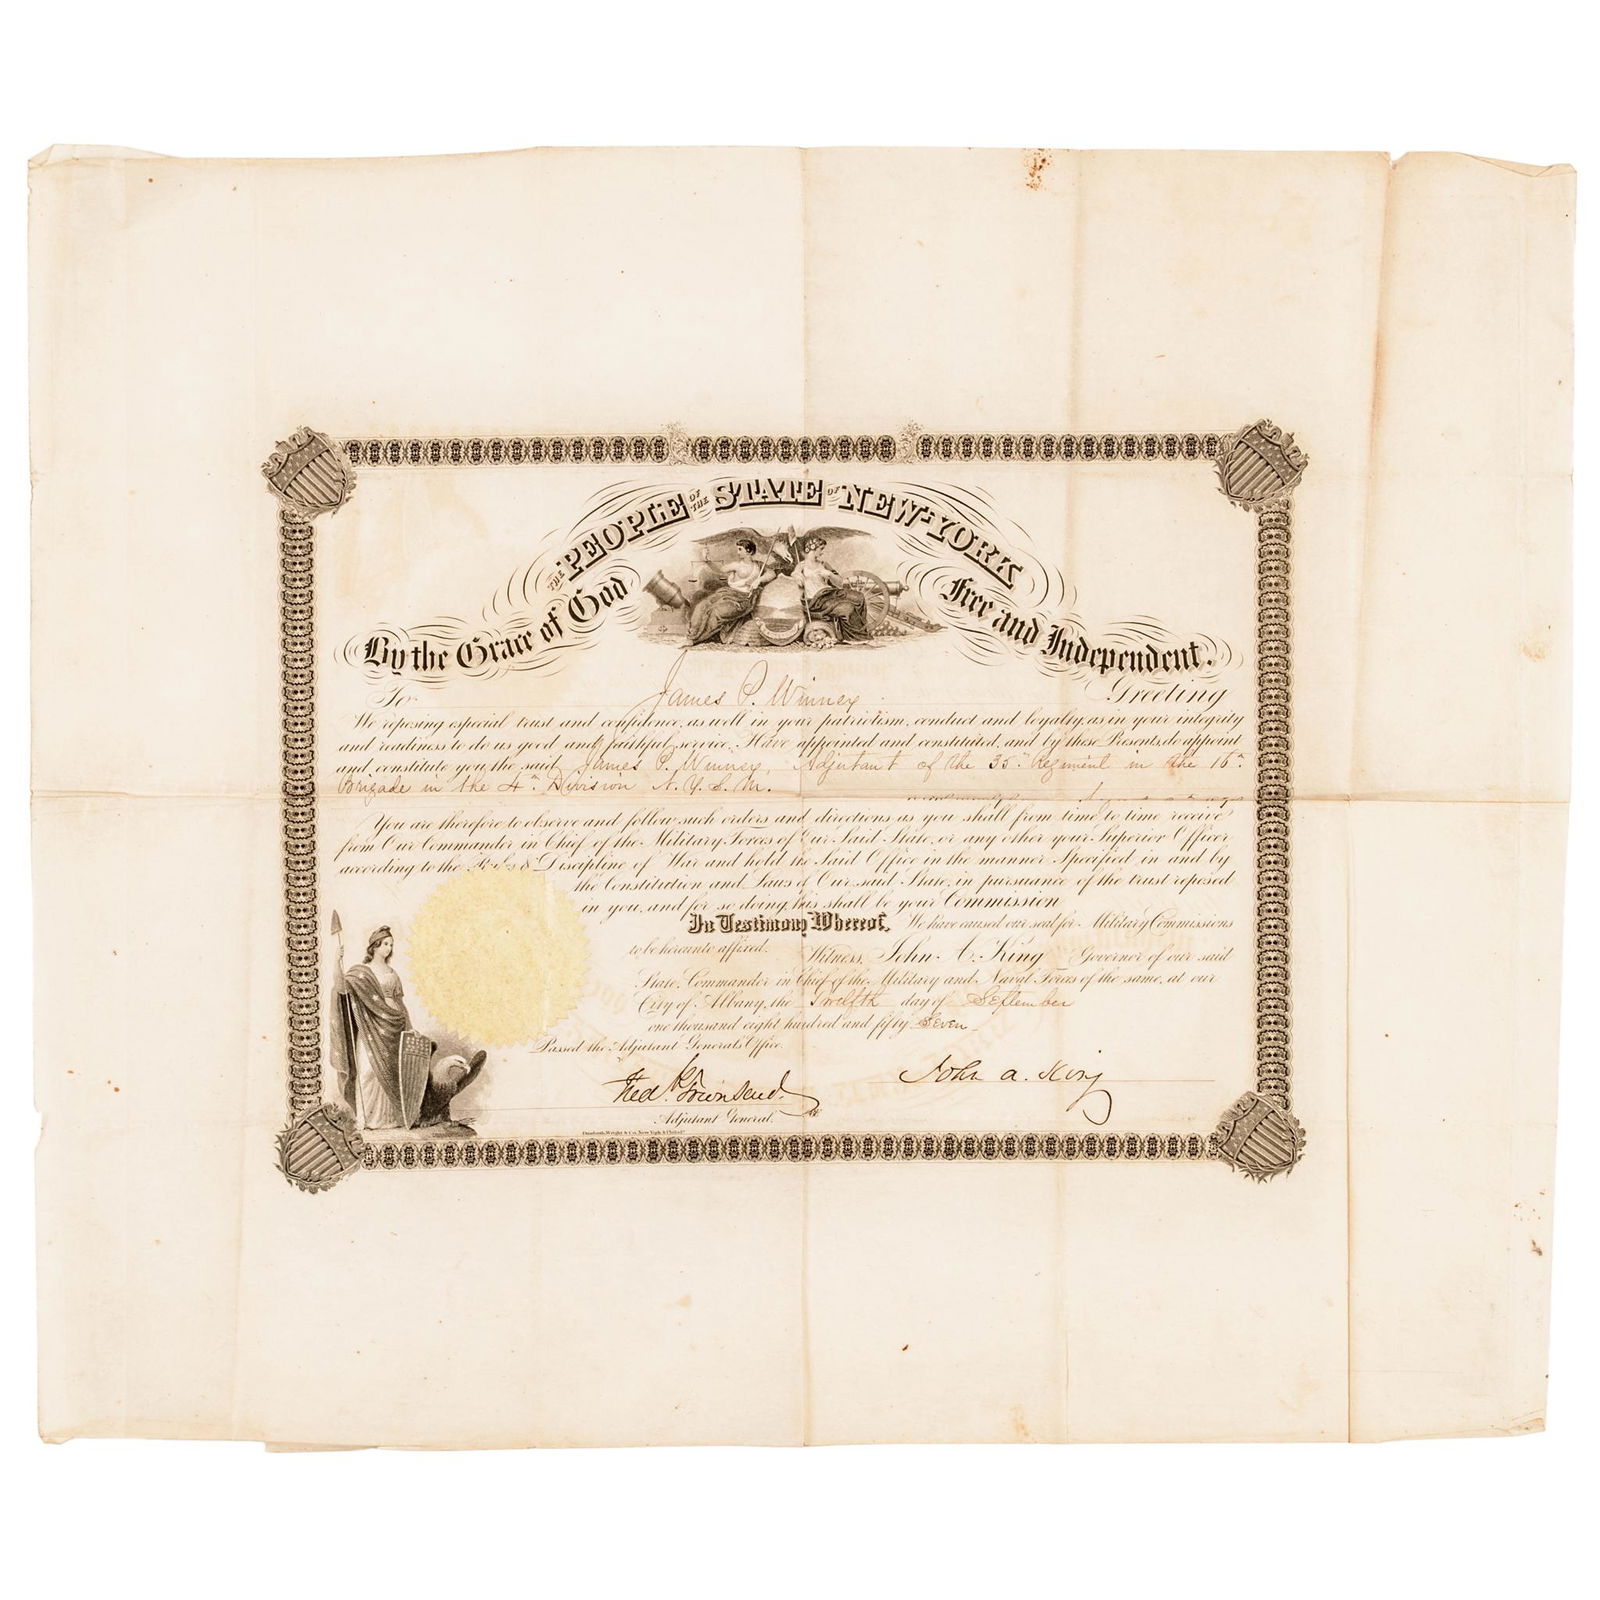 THE PEOPLE OF THE STATE OF NEW-YORK
By the Grace of God Free and Independent.
To James P. Winney Greeting
We reposing especial trust and confidence, as well in your patriotism, conduct and loyalty, as in your integrity
and readiness to do us good and faithful service, Have appointed and constituted, and by these Presents, do appoint
and constitute you, the said James P. Winney, Adjutant of the 35th Regiment in the 16th
Brigade in the 4th Division N.Y.S.M.
You are therefore to observe and follow such orders and directions as you shall from time to time receive
from Our Commander in Chief of the Military Forces of Our Said State, or any other your Superior Officer
according to the Rules & Discipline of War and hold the Said Office in the manner Specified in and by
the Constitution and Laws of Our said State, in pursuance of the trust reposed
in you, and for so doing, this shall be your Commission
In Testimony Whereof, We have caused our seal for Military Commissions
to be hereunto affixed. Witness, John A. King Governor of our said
State, Commander in Chief of the Military and Naval Forces of the same, at our
City of Albany, the Twelfth day of September
one thousand eight hundred and fifty Seven
Passed the Adjutant General's Office.
Fred. Townsend. John A. King
Adjutant General.
Danforth, Wright & Co. New York & Philada